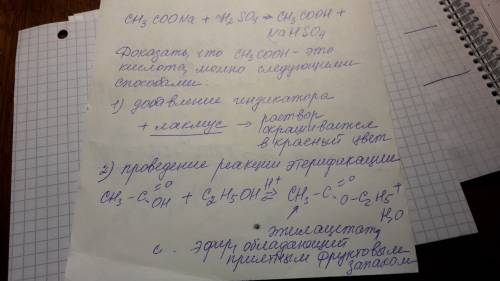 CH₃COONa + H₂SO₄ ⇄ CH₃COOH +
NaHSO₄
Доказать, что CH₃COOH - это
кислота, можно следующими
способами:
1) добавление индикатора
+ лакмус → раствор
окрашивается
в красный цвет
2) проведение реакции этерификации
CH₃ - C =O OH + C₂H₅OH ⇄ H⁺ CH₃ - C =O O-C₂H₅ +
H₂O
этилацетат,
с. эфир, обладающий
приятным фруктовым
запахом